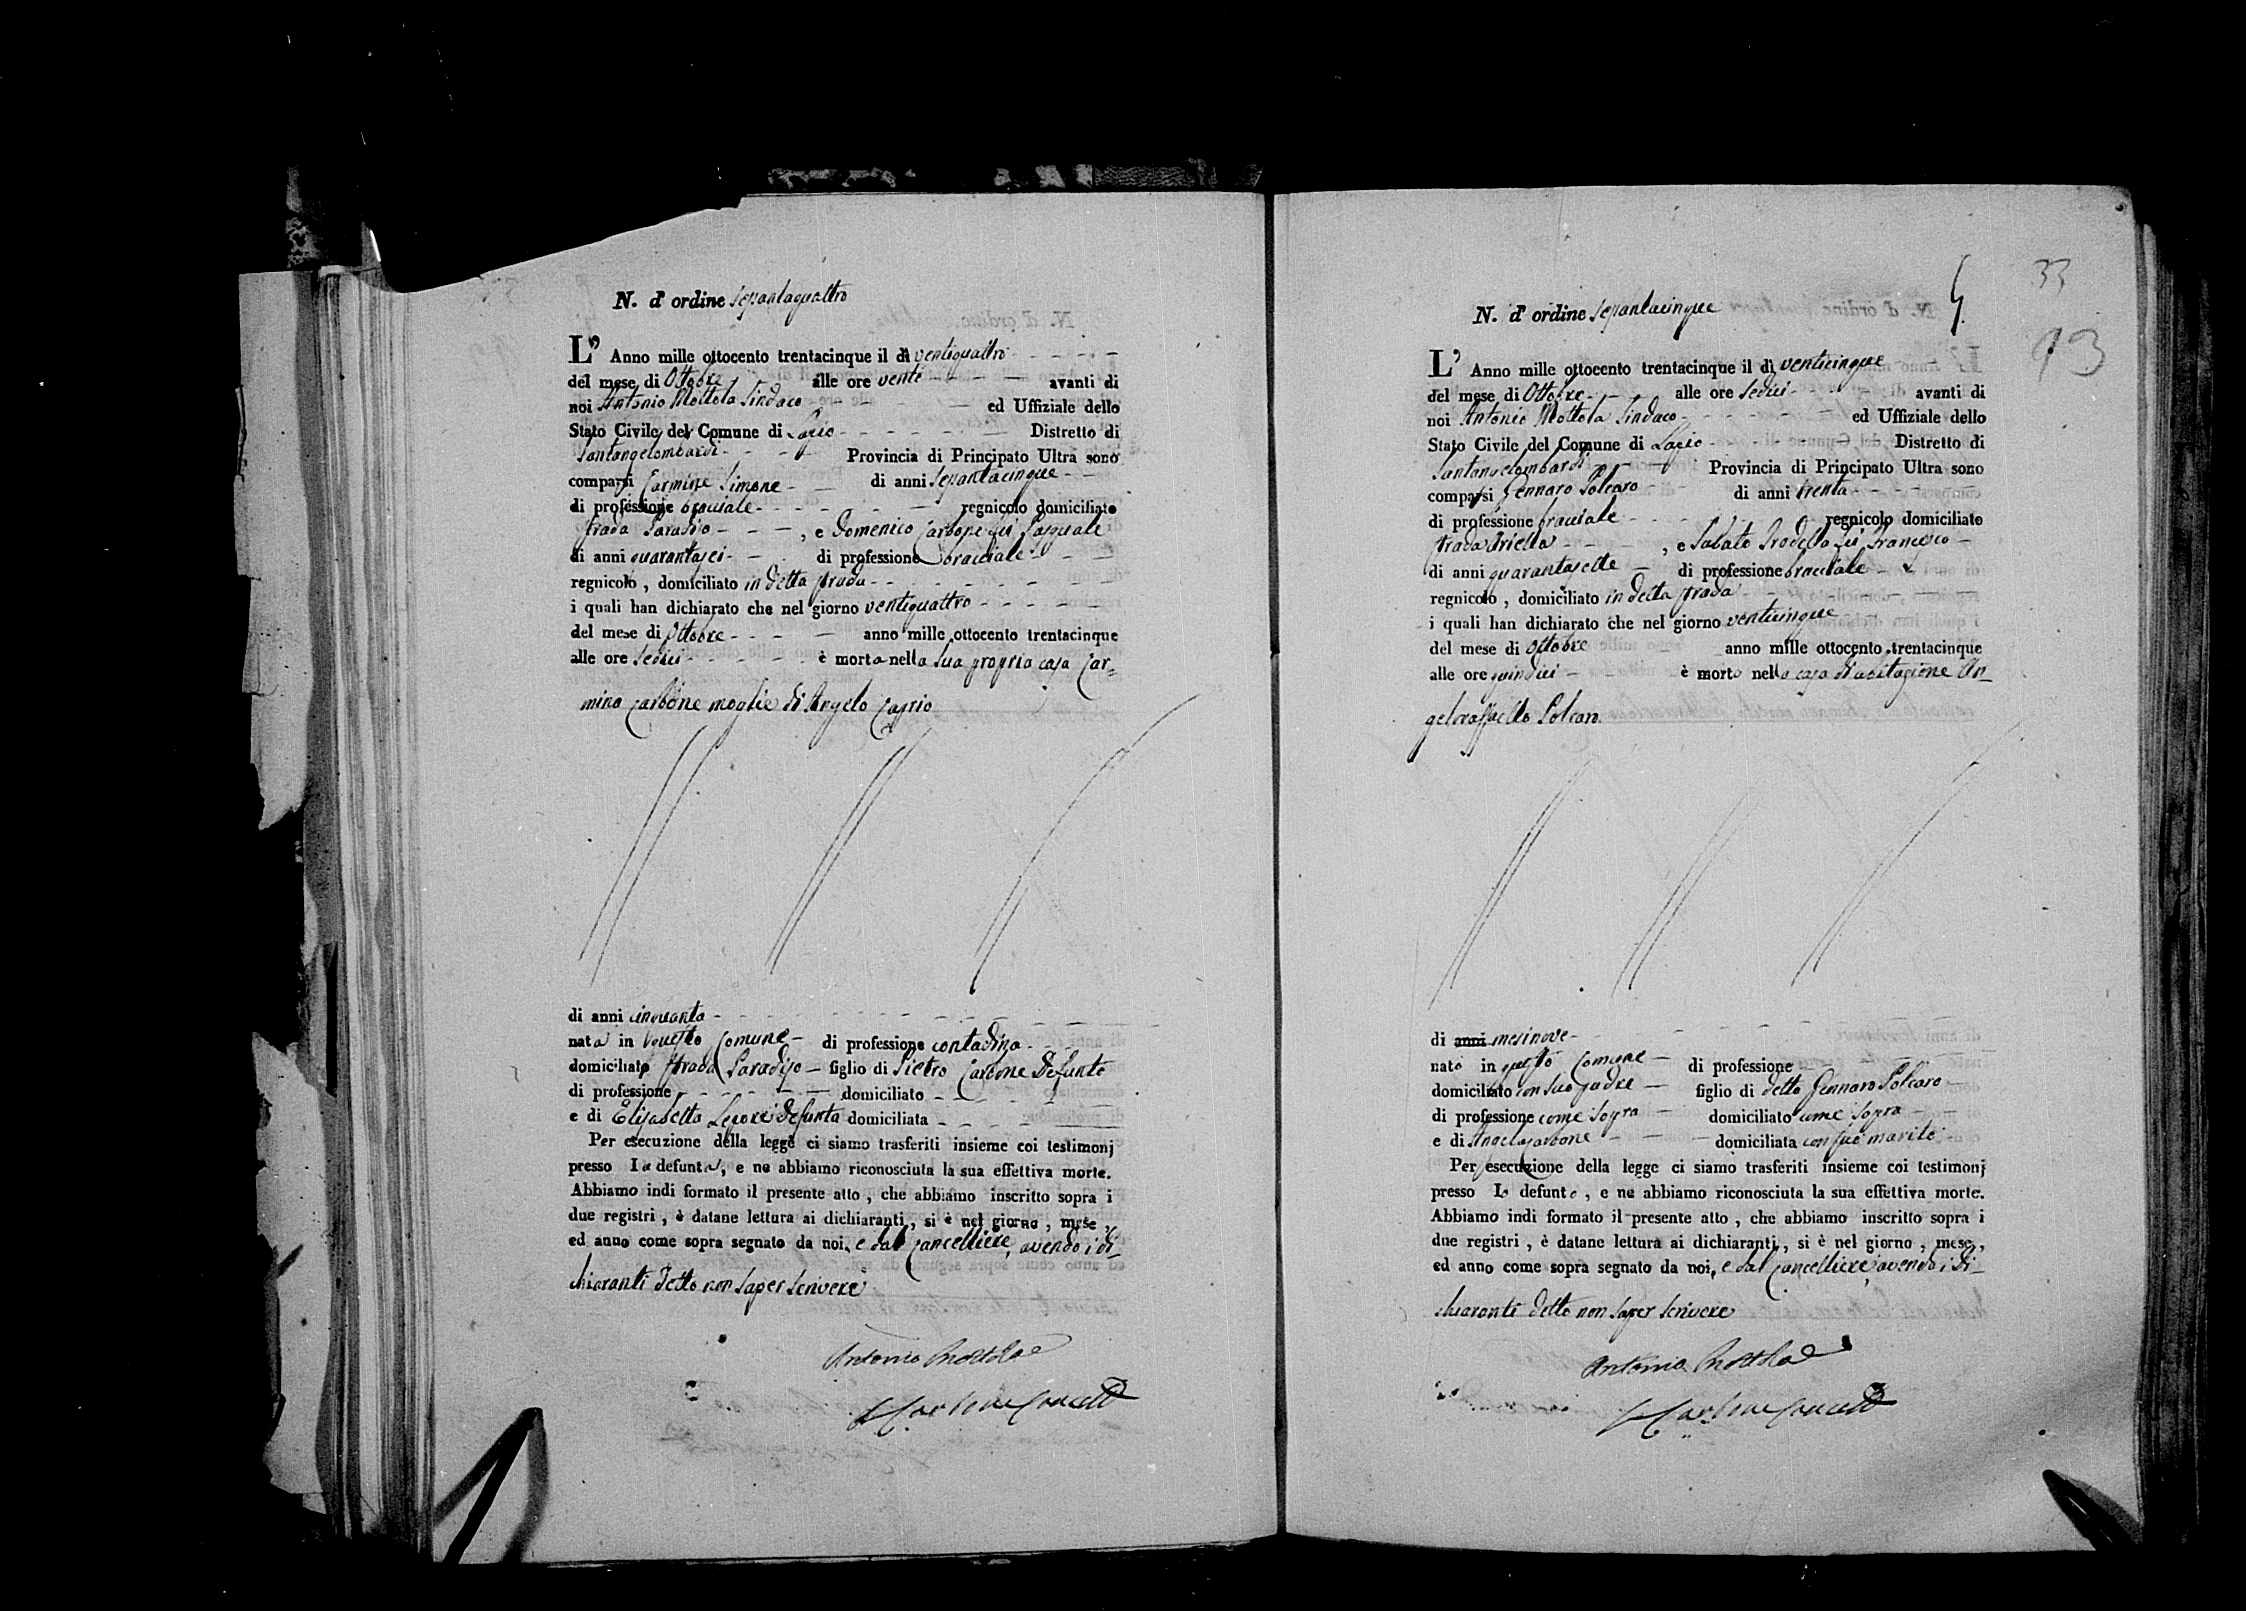 N. d' ordine sessantaquattro
L' Anno mille ottocento trentacinque il dì ventiquattro
del mese di Ottobre alle ore venti avanti di
noi Antonio Mottola Sindaco ed Uffiziale dello
Stato Civile del Comune di Lapio Distretto di
Santangelombardi Provincia di Principato Ultra sono
comparsi Carmine Simone di anni sessantacinque
di professione bracciale regnicolo domiciliato
strada Paradiso , e Domenico Carbone fu Pasquale
di anni quarantasei di professione bracciale
regnicolo , domiciliato in detta strada
i quali han dichiarato che nel giorno ventiquattro
del mese di Ottobre anno mille ottocento trentacinque
alle ore sedici è morta nella sua propria casa Car=
mina Carbone moglie di Angelo Caprio
di anni cinquanta
nata in questo Comune di professione contadina
domiciliata strada Paradiso figlio di Pietro Carbone Defunto
di professione domiciliato
e di Elisabetta Lepore defunta domiciliata
Per esecuzione della legge ci siamo trasferiti insieme coi testimonj
presso la defunta, e ne abbiamo riconosciuta la sua effettiva morte.
Abbiamo indi formato il presente atto , che abbiamo inscritto sopra i
due registri , è datane lettura ai dichiaranti , si è nel giorno , mese ,
ed anno come sopra segnato da noi, e dal Cancelliere, avendo i di-
chiaranti detto non saper scrivere
Antonio Mottola
Carbone Cancell
33
93
N. d' ordine sessantacinque
L' Anno mille ottocento trentacinque il dì venticinque
del mese di Ottobre alle ore sedici avanti di
noi Antonio Mottola Sindaco ed Uffiziale dello
Stato Civile del Comune di Lapio Distretto di
Santangelombardi Provincia di Principato Ultra sono
comparsi Gennaro Polcaro di anni trenta
di professione bracciale regnicolo domiciliato
strada Ariella , e Sabato Prodella fu Francesco
di anni quarantasette di professione bracciale
regnicolo , domiciliato in detta strada
i quali han dichiarato che nel giorno venticinque
del mese di Ottobre anno mille ottocento trentacinque
alle ore quindici è morto nella casa di abitazione An-
geloraffaello Polcaro
di anni mesi nove
nato in questo Comune di professione
domiciliato con suo padre figlio di detto Gennaro Polcaro
di professione come sopra domiciliato come sopra
e di Angela Carbone domiciliata con suo marito
Per esecuzione della legge ci siamo trasferiti insieme coi testimonj
presso lo defunto , e ne abbiamo riconosciuta la sua effettiva morte.
Abbiamo indi formato il presente atto , che abbiamo inscritto sopra i
due registri , è datane lettura ai dichiaranti , si è nel giorno , mese ,
ed anno come sopra segnato da noi, e dal Cancelliere, avendo i di-
chiaranti detto non saper scrivere
Antonio Mottola
Carbone Cancell